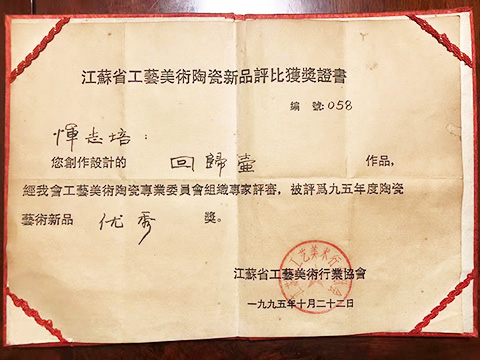 江蘇省工藝美術陶瓷新品評比獲獎證書
編 號:058
惲志培：
您創作設計的 回歸壺 作品，
經我會工藝美術陶瓷專業委員會組織專家評審，被評爲九五年度陶瓷
藝術新品 优秀 獎。
工艺美术行
江蘇省工藝美術行業協會
一九九五年十月二十二日